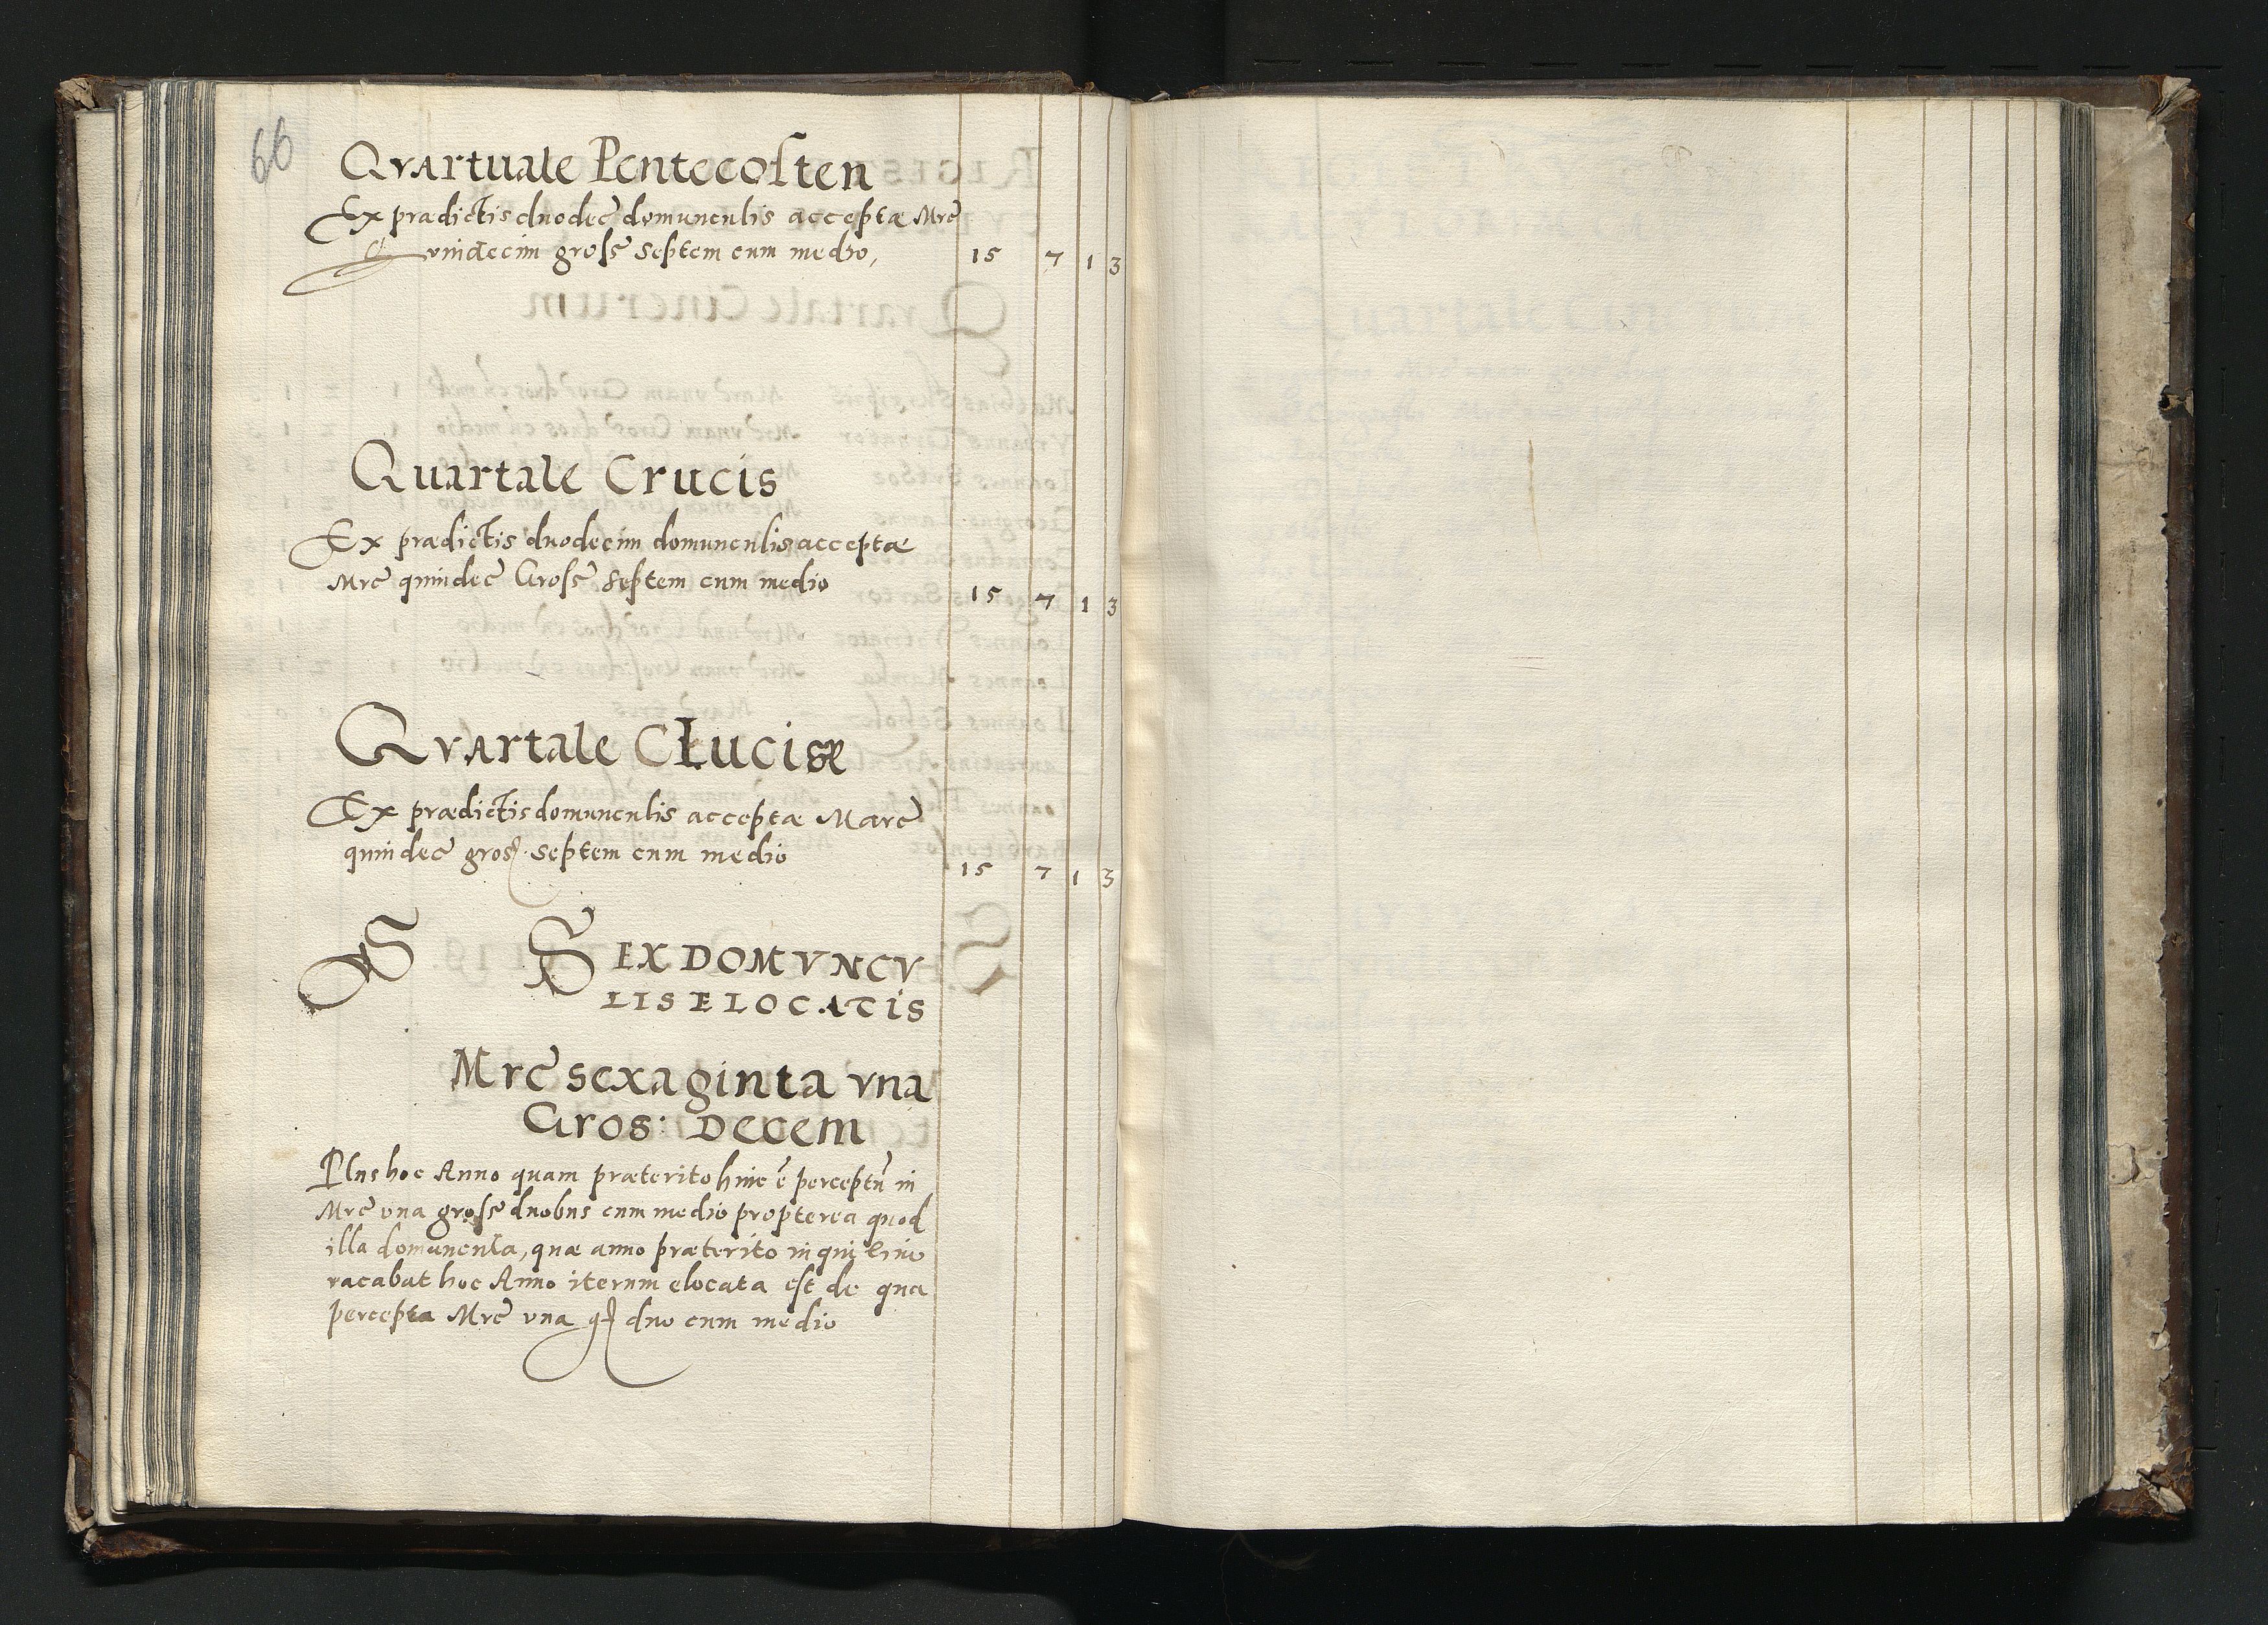 66
Qvartuale Pentecosten
Ex prædictis duodec̄ domunculis acceptæ Mrc̄
Quindecim gross̄ septem cum medio, 15 7 1 3
Quartale Crucis
Ex prædictis duodecim domunculis acceptæ
Mrc̄ quindec̄ Gross̄ septem cum medio 15 7 1 3
Qvartale Luciæ
Ex prædictis domunculis acceptæ Marc̄
quindec̄ gros. septem cum medio 15 7 1 3
S S EX DOMVNCV
LIS ELOCATIS
Mrc̄ sexaginta vna
Gros: Decem
Plus hoc Anno quam præterito hinc ē perceptū in
Mrc̄ vna gross̄ duobus cum medio propterea quod
illa domuncula, quæ anno præterito inquilino
vacabat hoc Anno iterum elocata est de qua
percepta Mrc̄ vna gr duo cum medio